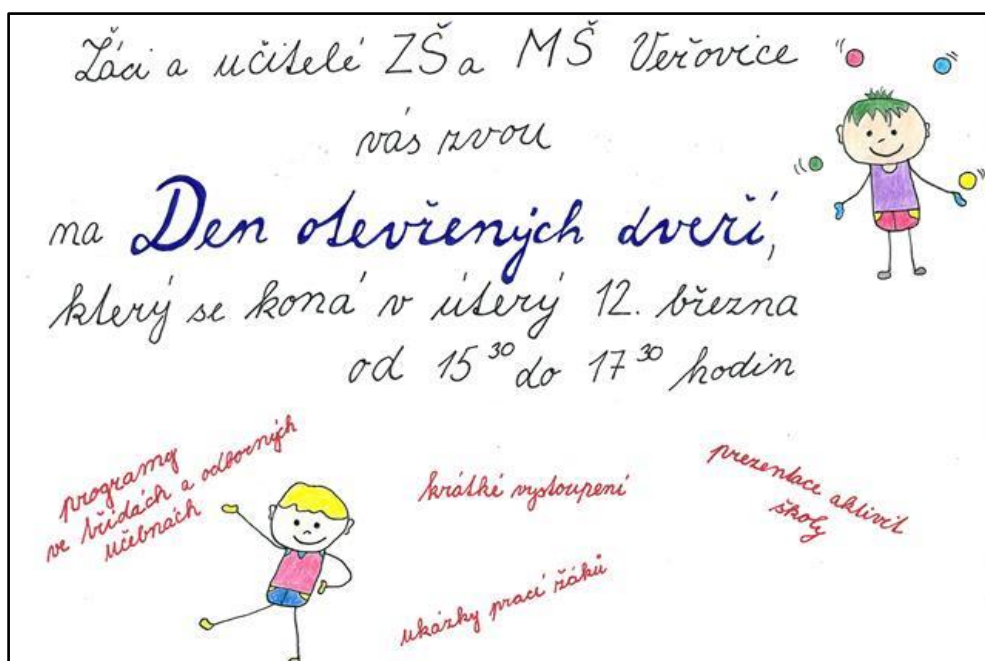 Žáci a učitelé ZŠ a MŠ Veřovice
vás zvou
na Den otevřených dveří,
který se koná v úterý 12. března
od 15³⁰ do 17³⁰ hodin
programy
ve třídách a odborných
učebnách
krátké vystoupení
prezentace aktivit
školy
ukázky prací žáků